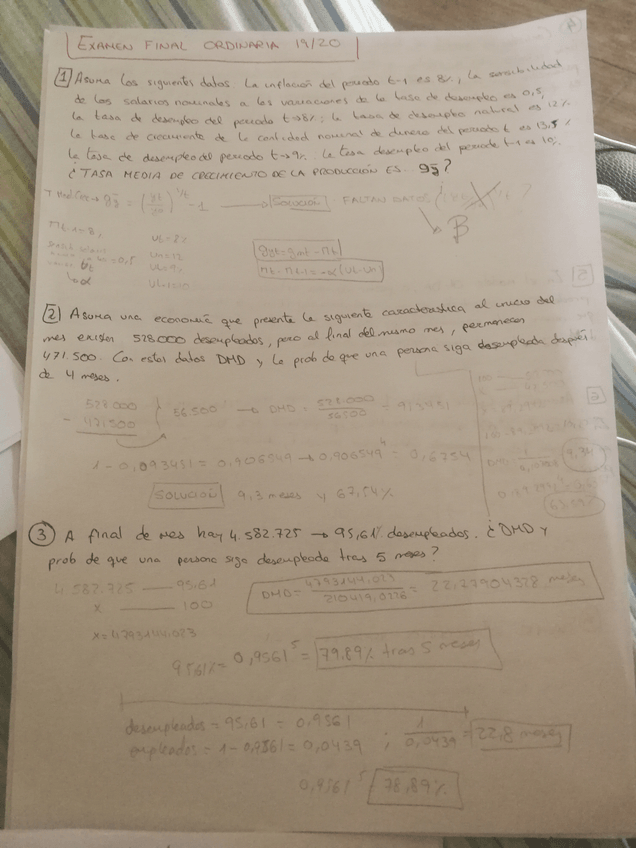 EXAMEN FINAL ORDINARIA 19/20
1 Asuma los siguientes datos la inflación del periodo t-1 es 8%, la sensibilidad
de los salarios nominales a las variaciones de la tasa de desempleo es 0,5,
la tasa de desempleo del periodo t→8%; la tasa de desempleo natural es 12%
la tasa de crecimiento de la cantidad nominal de dinero del periodo t es 13,5%
la tasa de desempleo del periodo t→9%. La tasa desempleo del periodo t-1 es 10%
¿TASA MEDIA DE CRECIMIENTO DE LA PRODUCCIÓN ES gȳ?
- 1 → SOLUCIÓN FALTAN DATOS
B
gyt = gmt - πt
πt - πt-1 = -α(Ut-Un)
2 Asuma una economía que presente la siguiente característica al inicio del
mes existen 528.000 desempleados, pero al final del mismo mes, permanecen
471.500. Con estos datos DMD y la prob de que una persona siga desempleada después
de 4 meses.
528000
- 471500
56500 → DMD = 528.000/56500
1 - 0,093451 = 0,906549 → 0,906549⁴ = 0,6754
SOLUCIÓN 9,3 meses y 67,54%
3 A final de mes hay 4.582.725 → 95,61% desempleados. ¿DMD y
prob de que una persona siga desempleada tras 5 meses?
4.582.725 — 95,61
x — 100
DMD = 4793144,023/210419,0226 = 22,77904328 meses
x = 4793144,023
95,61% = 0,9561⁵ = 79,89% tras 5 meses
desempleados = 95,61 = 0,9561
empleados = 1 - 0,9561 = 0,0439 ; 1/0,0439 = 22,8 meses
0,9561⁵ 78,89%